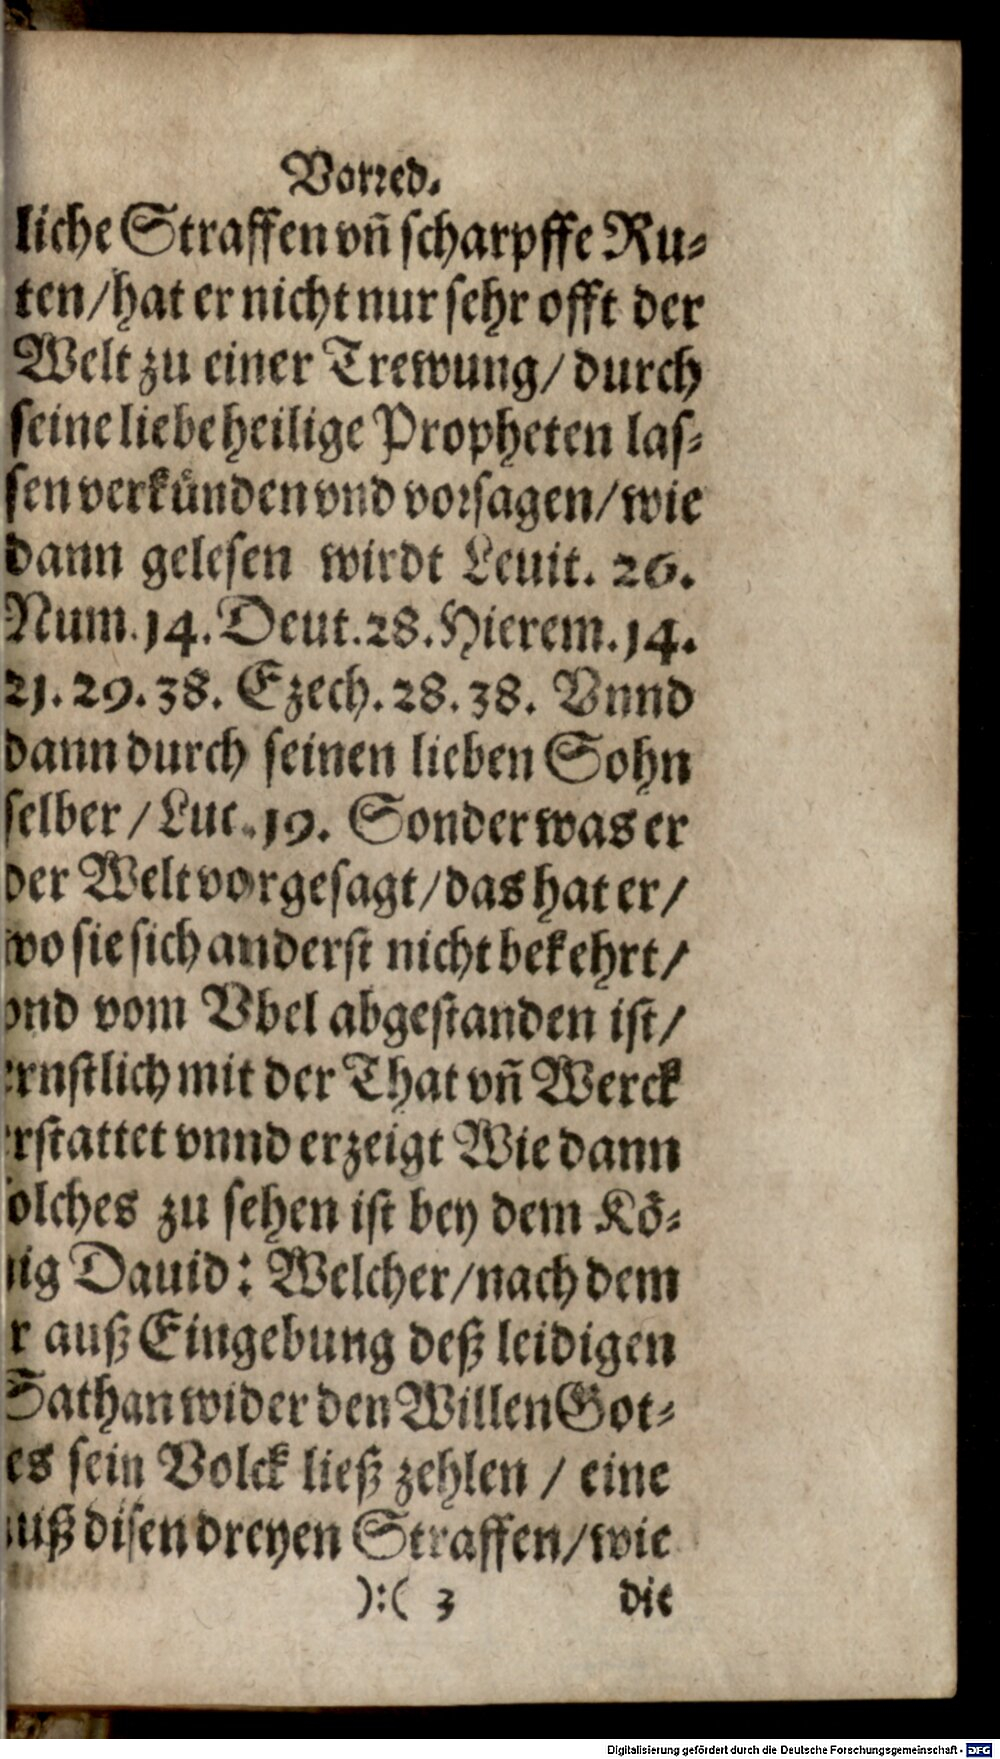 Vorred.
liche Straffen vñ scharpffe Ru-
ten/hat er nicht nur sehr offt der
Welt zu einer Trewung/durch
seine liebe heilige Propheten las-
sen verkünden vnd vorsagen/wie
dann gelesen wirdt Leuit. 26.
Num. 14. Deut. 28. Hierem. 14.
21. 29. 38. Ezech. 28. 38. Vnnd
dann durch seinen lieben Sohn
selber/Luc. 19. Sonder was er
der Welt vorgesagt/das hat er/
wo sie sich anderst nicht bekehrt/
vnd vom Vbel abgestanden ist/
ernstlich mit der That vñ Werck
erstattet vnnd erzeigt Wie dann
solches zu sehen ist bey dem Kö-
nig Dauid: Welcher/nach dem
er auß Eingebung deß leidigen
Sathan wider den Willen Got-
es sein Volck ließ zehlen / eine
auß disen dreyen Straffen/wie
):( 3 die
Digitalisierung gefördert durch die Deutsche Forschungsgemeinschaft - DFG